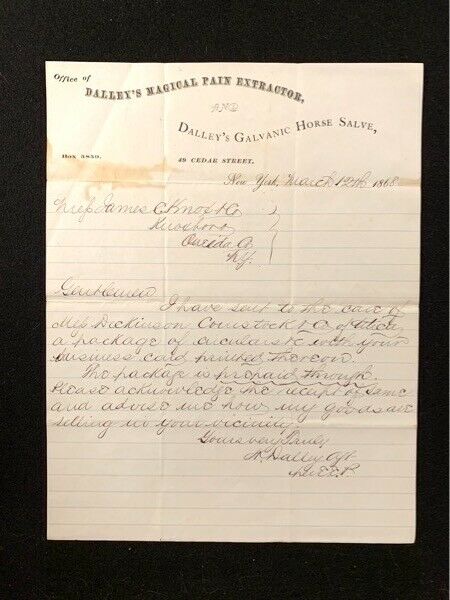 Office of
DALLEY'S MAGICAL PAIN EXTRACTOR,
AND
DALLEY'S GALVANIC HORSE SALVE,
Box 3839. 49 CEDAR STREET.
New York, March 12th 1868
Mess James C. Knox & Co
Knoxboro
Oneida Co
N.Y.
Gentlemen
I have sent to the care of
Mess Dickinson Comstock & Co of Utica,
a package of circulars &c with your
business card printed thereon.
The package is prepaid through.
Please acknowledge the receipt of same
and advise me how my goods are
selling in your vicinity.
Yours very Truly
H. Dalley Agt
per E.E.P.